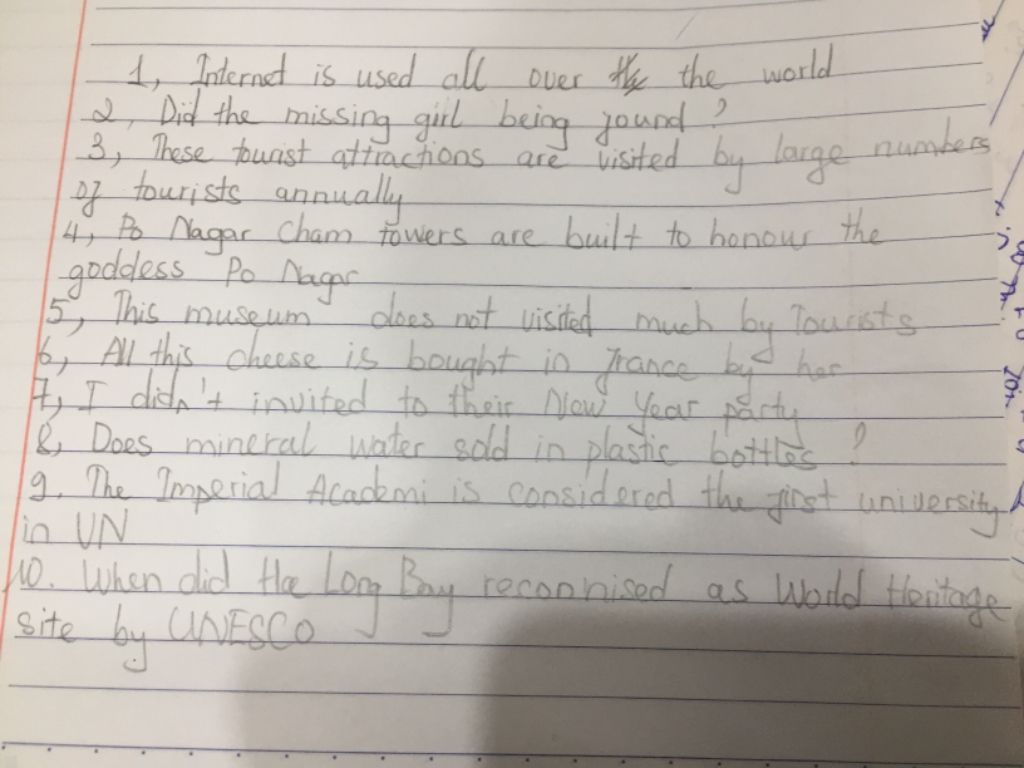 1, Internet is used all over the the world
2, Did the missing girl being found ?
3, These tourist attractions are visited by large numbers
of tourists annually
4, Po Nagar Cham towers are built to honour the
goddess Po Nagar
5, This museum does not visited much by Tourists
6, All this cheese is bought in France by her
7, I didn't invited to their New Year party
8, Does mineral water sold in plastic bottles ?
9. The Imperial Academi is considered the first university
in VN
10. When did Ha Long Bay reconnised as World Heritage
site by UNESCO